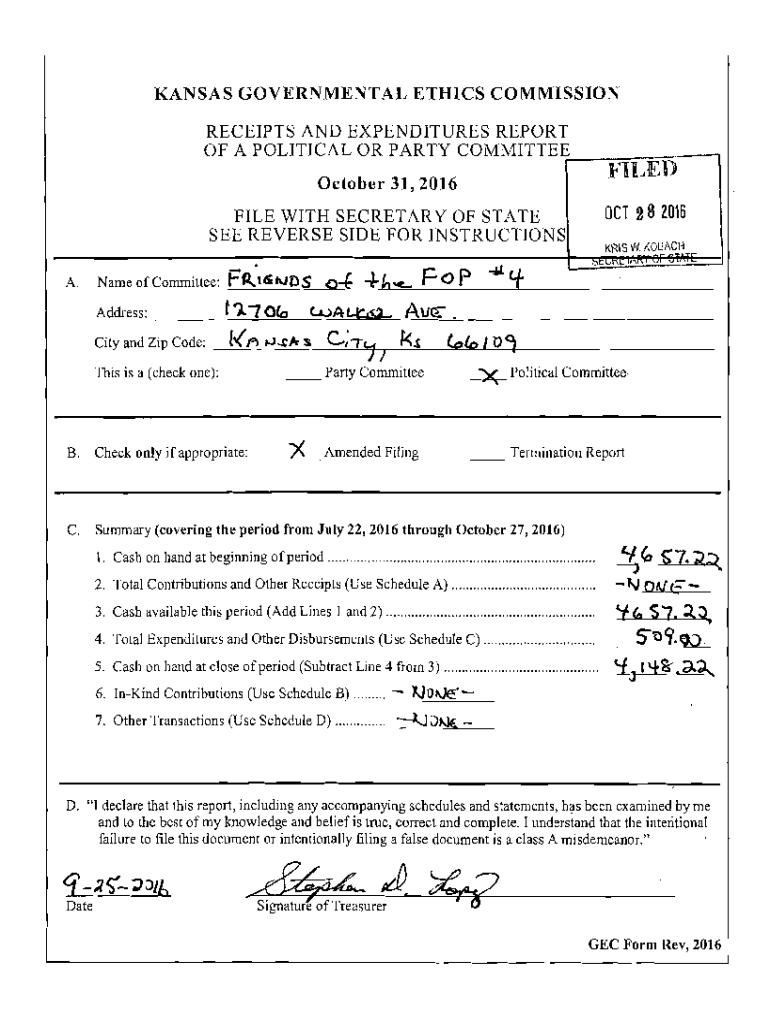 KANSAS GOVERNMENTAL ETHICS COMMISSION
RECEIPTS AND EXPENDITURES REPORT
OF A POLITICAL OR PARTY COMMITTEE
October 31, 2016
FILE WITH SECRETARY OF STATE
SEE REVERSE SIDE FOR INSTRUCTIONS
FILED
OCT 28 2016
KRIS W. KOBACH
SECRETARY OF STATE
A. Name of Committee: FRIENDS of the FOP #4
Address: 12706 WALKER AVE.
City and Zip Code: KANSAS CITY, KS 66109
This is a (check one): ____ Party Committee X Political Committee
B. Check only if appropriate: X Amended Filing ____ Termination Report
C. Summary (covering the period from July 22, 2016 through October 27, 2016)
1. Cash on hand at beginning of period ........ 4,657.22
2. Total Contributions and Other Receipts (Use Schedule A) ........ -NONE-
3. Cash available this period (Add Lines 1 and 2) ........ 4657.22
4. Total Expenditures and Other Disbursements (Use Schedule C) ........ 509.00
5. Cash on hand at close of period (Subtract Line 4 from 3) ........ 4,148.22
6. In-Kind Contributions (Use Schedule B) ........ - NONE -
7. Other Transactions (Use Schedule D) ........ - NONE -
D. "I declare that this report, including any accompanying schedules and statements, has been examined by me
and to the best of my knowledge and belief is true, correct and complete. I understand that the intentional
failure to file this document or intentionally filing a false document is a class A misdemeanor."
9-25-2016 Stephen D. Lopez
Date Signature of Treasurer
GEC Form Rev, 2016